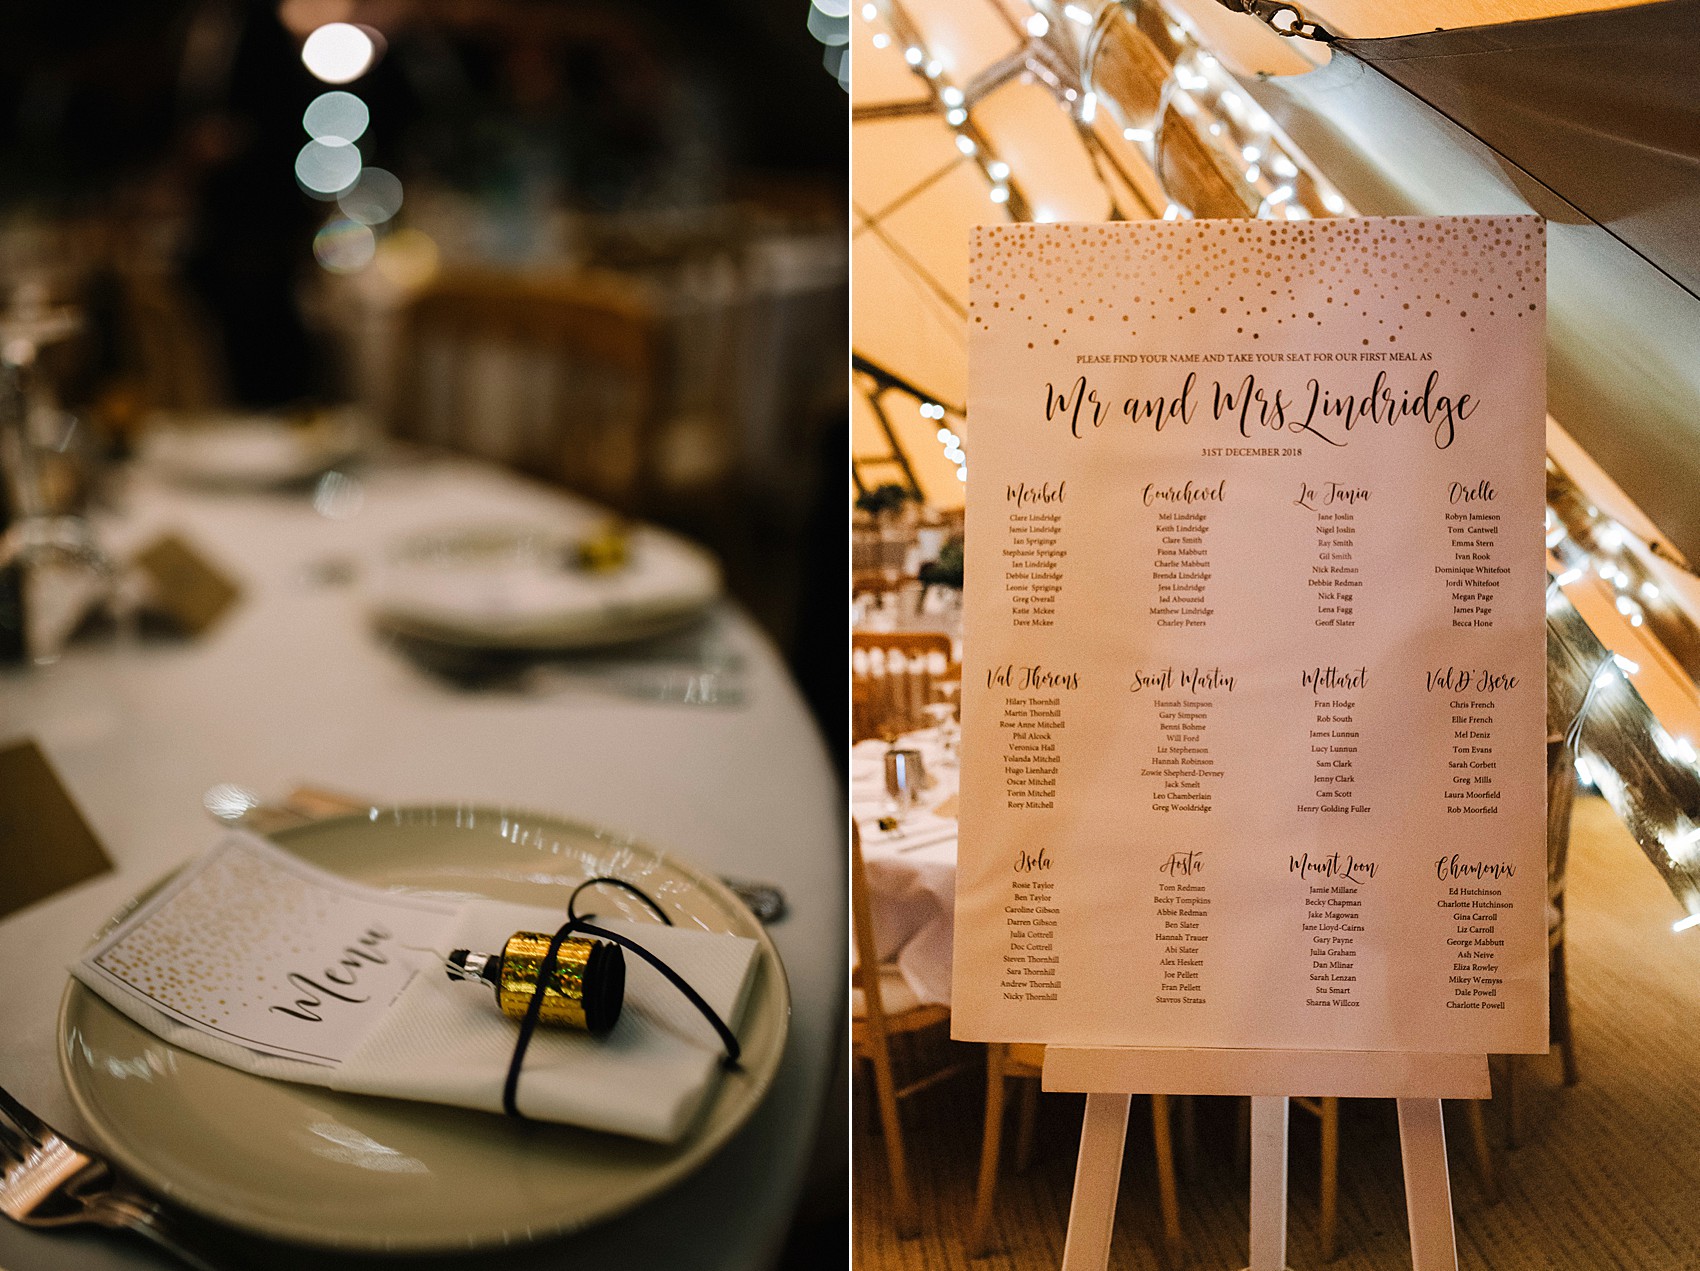 Menu
PLEASE FIND YOUR NAME AND TAKE YOUR SEAT FOR OUR FIRST MEAL AS
Mr and Mrs Lindridge
31ST DECEMBER 2018
Meribel
Clare Lindridge
Jamie Lindridge
Ian Sprigings
Stephanie Sprigings
Ian Lindridge
Debbie Lindridge
Leonie Sprigings
Greg Overall
Katie Mckee
Dave Mckee
Courchevel
Mel Lindridge
Keith Lindridge
Clare Smith
Fiona Mabbutt
Charlie Mabbutt
Brenda Lindridge
Jess Lindridge
Jad Abouzeid
Matthew Lindridge
Charley Peters
La Tania
Jane Joslin
Nigel Joslin
Ray Smith
Gil Smith
Nick Redman
Debbie Redman
Nick Fagg
Lena Fagg
Geoff Slater
Orelle
Robyn Jamieson
Tom Cantwell
Emma Stern
Ivan Rook
Dominique Whitefoot
Jordi Whitefoot
Megan Page
James Page
Becca Hone
Val Thorens
Hilary Thornhill
Martin Thornhill
Rose Anne Mitchell
Phil Alcock
Veronica Hall
Yolanda Mitchell
Hugo Lienhardt
Oscar Mitchell
Torin Mitchell
Rory Mitchell
Saint Martin
Hannah Simpson
Gary Simpson
Benni Bohme
Will Ford
Liz Stephenson
Hannah Robinson
Zowie Shepherd-Devney
Jack Smelt
Leo Chamberlain
Greg Wooldridge
Mottaret
Fran Hodge
Rob South
James Lunnun
Lucy Lunnun
Sam Clark
Jenny Clark
Cam Scott
Henry Golding Fuller
Val D'Isere
Chris French
Ellie French
Mel Deniz
Tom Evans
Sarah Corbett
Greg Mills
Laura Moorfield
Rob Moorfield
Isola
Rosie Taylor
Ben Taylor
Caroline Gibson
Darren Gibson
Julia Cottrell
Doc Cottrell
Steven Thornhill
Sara Thornhill
Andrew Thornhill
Nicky Thornhill
Aosta
Tom Redman
Becky Tompkins
Abbie Redman
Ben Slater
Hannah Trauer
Abi Slater
Alex Heskett
Joe Pellett
Fran Pellett
Stavros Stratas
Mount Loon
Jamie Millane
Becky Chapman
Jake Magowan
Jane Lloyd-Cairns
Gary Payne
Julia Graham
Dan Mlinar
Sarah Lenzan
Stu Smart
Sharna Willcox
Chamonix
Ed Hutchinson
Charlotte Hutchinson
Gina Carroll
Liz Carroll
George Mabbutt
Ash Neive
Eliza Rowley
Mikey Wemyss
Dale Powell
Charlotte Powell